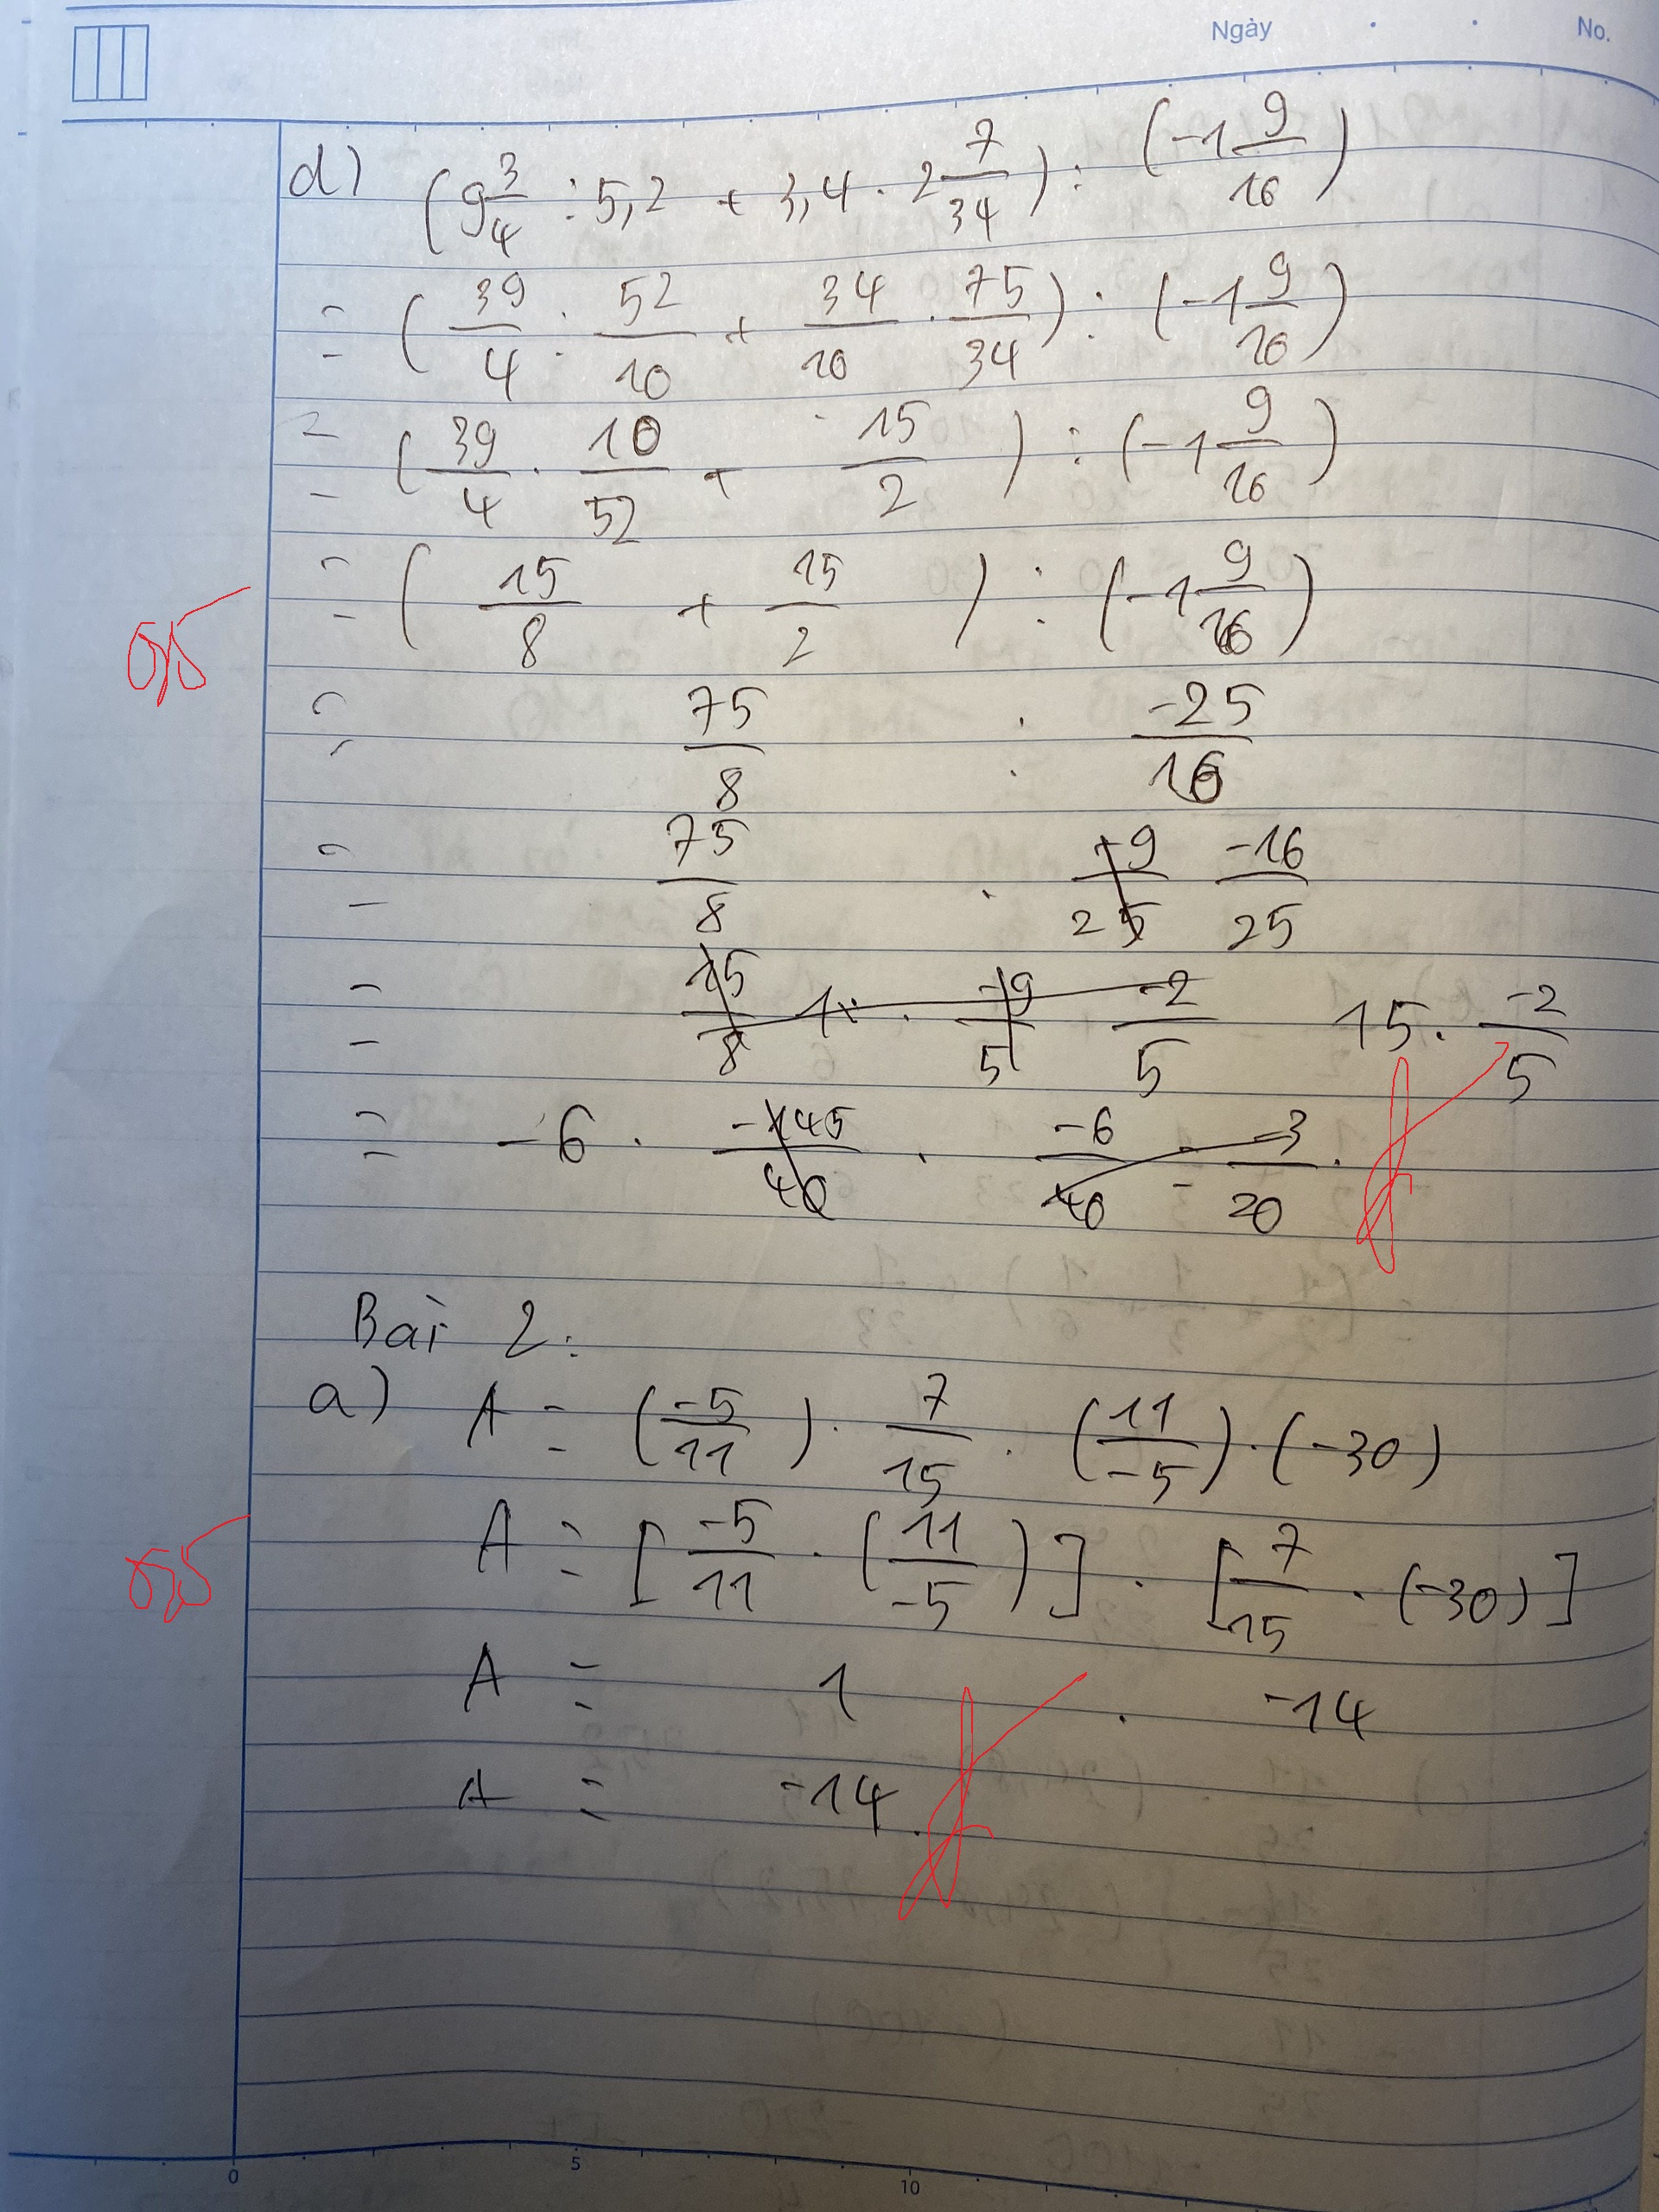 Ngày No.
d) (9 3/4 : 5,2 + 3,4 . 2 7/34) : (-1 9/16)
= (39/4 : 52/10 + 34/10 . 75/34) : (-1 9/16)
= (39/4 . 10/52 + 15/2) : (-1 9/16)
0,5
= (15/8 + 15/2) : (-1 9/16)
= 75/8 : -25/16
= 75/8 . -9/25 -16/25
= 15/8 . -9/5 -2/5 15 . -2/5
= -6 . -145/40 . -6/40 = -3/20 .
Bài 2:
a) A = (-5/11) . 7/15 . (11/-5) . (-30)
0,5
A = [-5/11 . (11/-5)] . [7/15 . (-30)]
A = 1 . -14
A = -14.
0 5 10